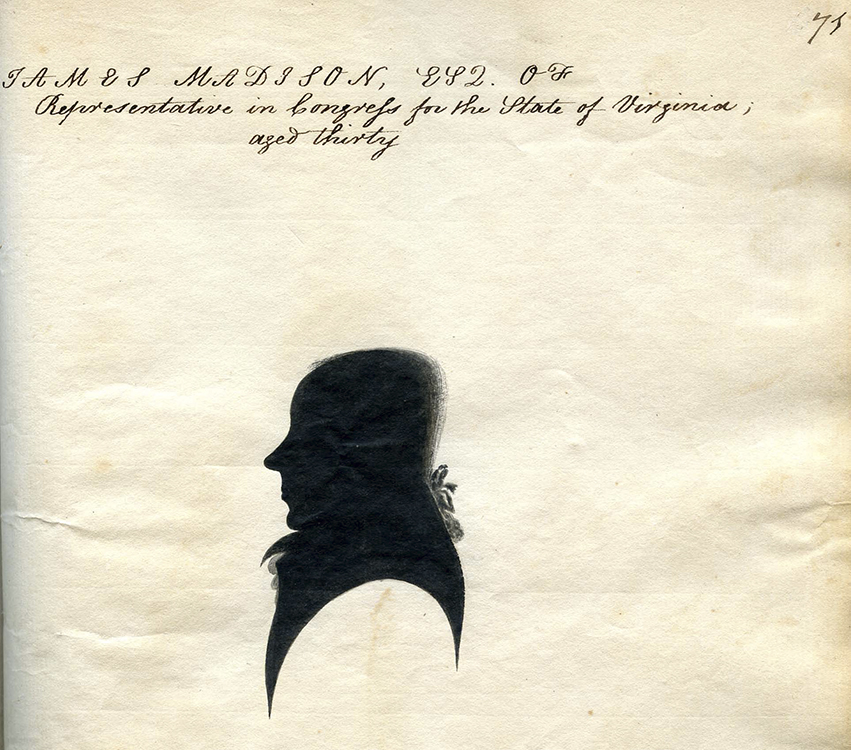 75
JAMES MADISON, ESQ. OF
Representative in Congreſs for the State of Virginia;
aged thirty